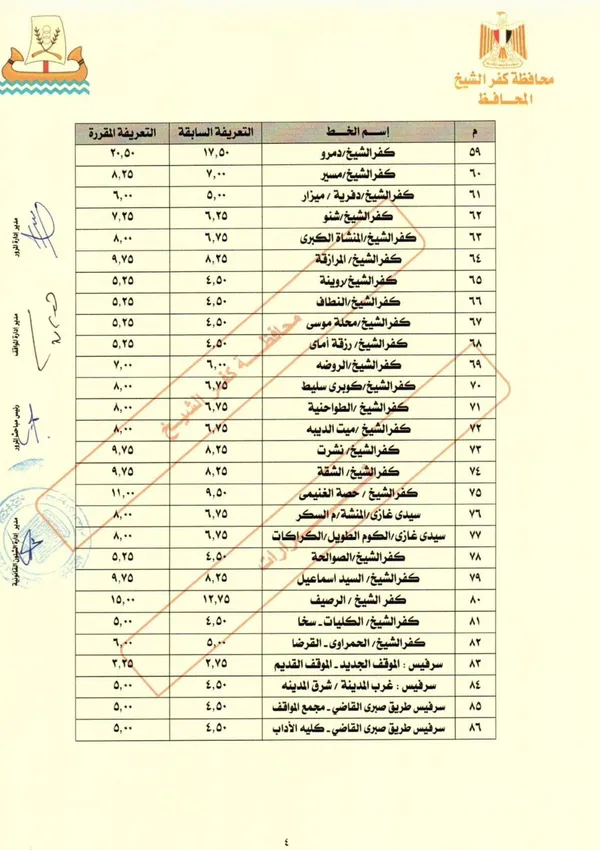 محافظة كفر الشيخ
المحافظ
م إسم الخط التعريفة السابقة التعريفة المقررة
٥٩ كفرالشيخ/دمرو ١٧,٥٠ ٢٠,٥٠
٦٠ كفرالشيخ/مسير ٧,٠٠ ٨,٢٥
٦١ كفرالشيخ/دفرية / ميزار ٥,٠٠ ٦,٠٠
٦٢ كفرالشيخ/شنو ٦,٢٥ ٧,٢٥
٦٣ كفرالشيخ/المنشاة الكبرى ٦,٧٥ ٨,٠٠
٦٤ كفرالشيخ/ المرازقة ٨,٢٥ ٩,٧٥
٦٥ كفرالشيخ/روينة ٤,٥٠ ٥,٢٥
٦٦ كفرالشيخ/النطاف ٤,٥٠ ٥,٢٥
٦٧ كفرالشيخ/محلة موسى ٤,٥٠ ٥,٢٥
٦٨ كفرالشيخ/ رزقة أماى ٤,٥٠ ٥,٢٥
٦٩ كفرالشيخ/الروضه ٦,٠٠ ٧,٠٠
٧٠ كفرالشيخ/كوبرى سليط ٦,٧٥ ٨,٠٠
٧١ كفرالشيخ /الطواحنية ٦,٧٥ ٨,٠٠
٧٢ كفرالشيخ /ميت الديبه ٦,٧٥ ٨,٠٠
٧٣ كفرالشيخ/ نشرت ٨,٢٥ ٩,٧٥
٧٤ كفرالشيخ/ الشقة ٨,٢٥ ٩,٧٥
٧٥ كفرالشيخ / حصة الغنيمى ٩,٥٠ ١١,٠٠
٧٦ سيدى غازى/المنشة/م السكر ٦,٧٥ ٨,٠٠
٧٧ سيدى غازى/الكوم الطويل/الكراكات ٦,٧٥ ٨,٠٠
٧٨ كفرالشيخ/الصوالحة ٤,٥٠ ٥,٢٥
٧٩ كفرالشيخ/ السيد اسماعيل ٨,٢٥ ٩,٧٥
٨٠ كفر الشيخ / الرصيف ١٢,٧٥ ١٥,٠٠
٨١ كفرالشيخ/ الكليات - سخا ٤,٥٠ ٥,٠٠
٨٢ كفرالشيخ/ الحمراوى - القرضا ٥,٠٠ ٦,٠٠
٨٣ سرفيس : الموقف الجديد - الموقف القديم ٢,٧٥ ٣,٢٥
٨٤ سرفيس : غرب المدينة / شرق المدينه ٤,٥٠ ٥,٠٠
٨٥ سرفيس طريق صبرى القاضي - مجمع المواقف ٤,٥٠ ٥,٠٠
٨٦ سرفيس طريق صبرى القاضي - كليه الأداب ٤,٥٠ ٥,٠٠
مدير إدارة المرور
مدير إدارة المواقف
رئيس مباحث المرور
مدير إدارة الشئون القانونية
محافظة كفر الشيخ
٤